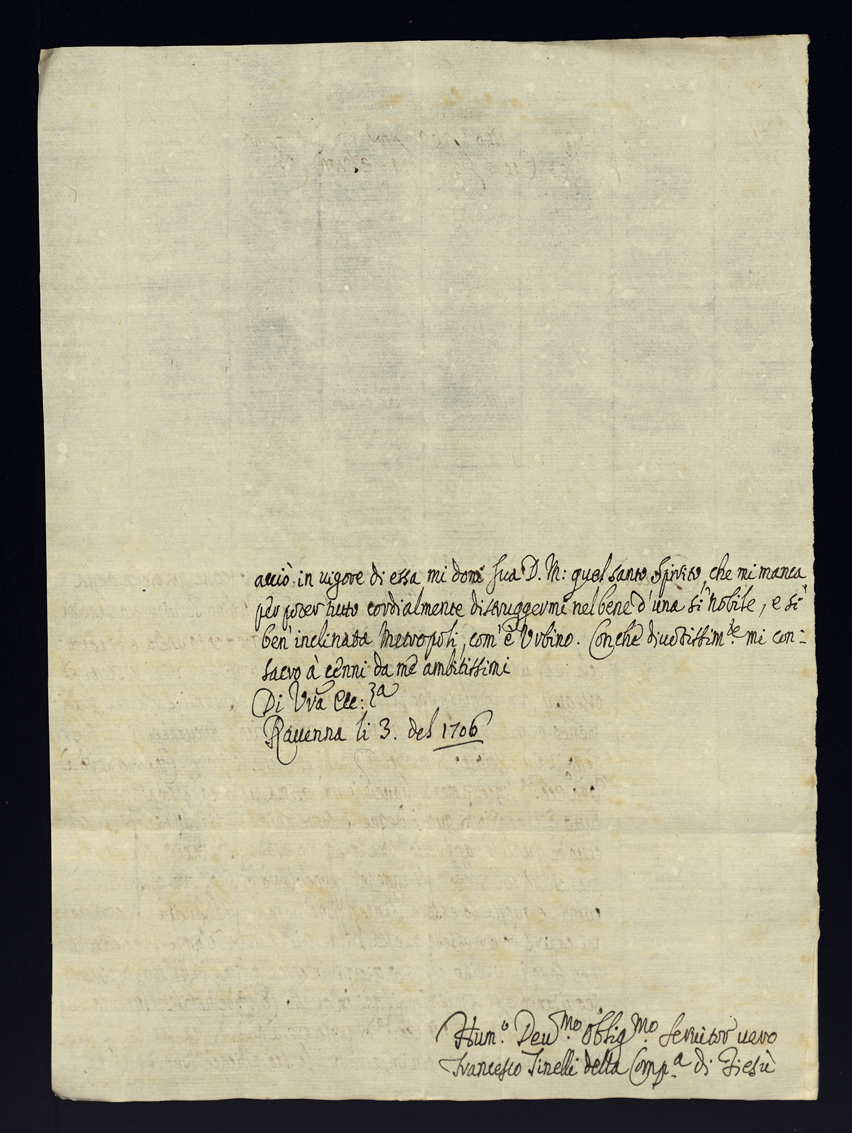 acciò in vigore di essa mi doni Sua D. M: quel santo Spirito, che mi manca
per poter tutto cordialmente distruggermi nel bene d'una sì Nobile, e sì
ben' inclinata Metropoli, com' è Urbino. Con che divotissim.te mi con-
sacro à cenni da mè ambitissimi
Di Vrã Ecc:za
Ravenna li 3. del 1706
Hum.o Dev.mo Obblig.mo Servitor vero
Francesco Tinelli della Comp.a di Giesù